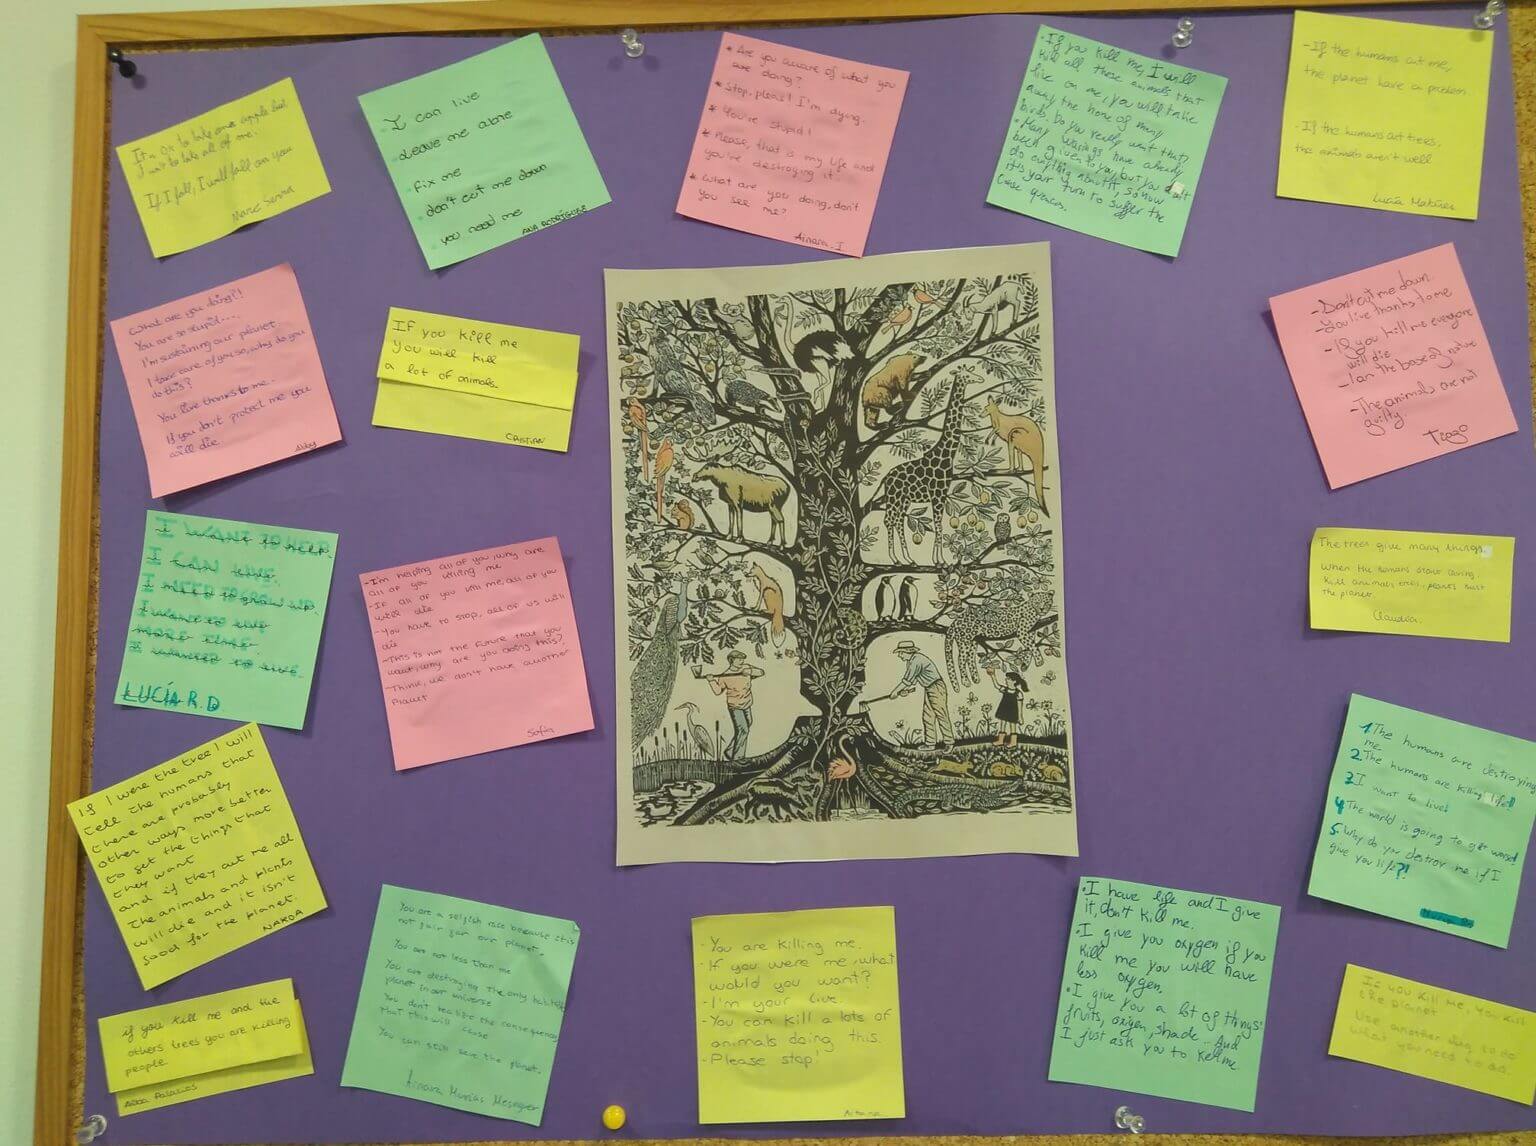 It's OK to take one apple but
not to take all of me.
If I fall, I will fall on you
Marc Senra
I can live
Leave me alone
fix me
don't cut me down
you need me
ANA RODRÍGUEZ
* Are you aware of what you
are doing?
* Stop, please! I'm dying.
* You're stupid!
* Please, that is my life and
you're destroying it
* What are you doing, don't
you see me?
Ainara. I
• If you kill me, I will
kill all these animals that
live on me, you will take
away the home of many
birds. Do you really want that?
• Many warnings have already
been given to you, but you don't
do anything about it, so now
it's your turn to suffer the
consequences.
- If the humans cut me,
the planet have a problem.
- If the humans cut trees,
the animals aren't well
Lucía Martínez
What are you doing?!
You are so stupid....
I'm sustaining our planet
I take care of you so, why do you
do this?
You live thanks to me.
If you don't protect me you
will die.
Abby
If you kill me
you will kill
a lot of animals.
CRISTIAN
- Don't cut me down.
- You live thanks to me
- If you kill me everyone
will die
- I am the base of native
- The animals are not
guilty.
Tiago
I WANT TO HELP.
I CAN LIVE.
I NEED TO GROW UP.
I WANT TO LIVE
MORE TIME.
I WANTED TO LIVE.
LUCÍA R.D
- I'm helping all of you, why are
all of you killing me
- If all of you kill me, all of you
will die
- You have to stop, all of us will
die
- This is not the future that you
want, why are you doing this?
- Think, we don't have another
Planet
Sofía
The trees give many things.
When the humans start caring.
kill animals trees, plants hurt
the planet.
Claudia.
If I were the tree I will
tell the humans that
there are probably
other ways more better
to get the things that
they want
and if they cut me all
The animals and plants
will die and it isn't
good for the planet.
NAROA
1 The humans are destroying
me
2 The humans are killing life!!
3 I want to live!
4 The world is going to get worse!
5 Why do you destroy me if I
give you life?!
if you kill me and the
others trees you are killing
people.
Alba Palacios
You are a selfish race because it is
not fair for our planet,
You are not less than me
You are destroying the only habitable
planet in our universe
You don't realize the consequences
that this will cause
You can still save the planet.
Ainara Murias Mesnger
- You are killing me.
- If you were me, what
would you want?
- I'm your live.
- You can kill a lots of
animals doing this.
- Please stop!
Aitana
• I have life and I give
it, don't kill me.
• I give you oxygen if you
kill me you will have
less oxygen.
• I give you a lot of things:
fruits, oxygen, shade. And
I just ask you to kell me.
If you kill me, you kill
the planet
Use another way to do
what you need to do.